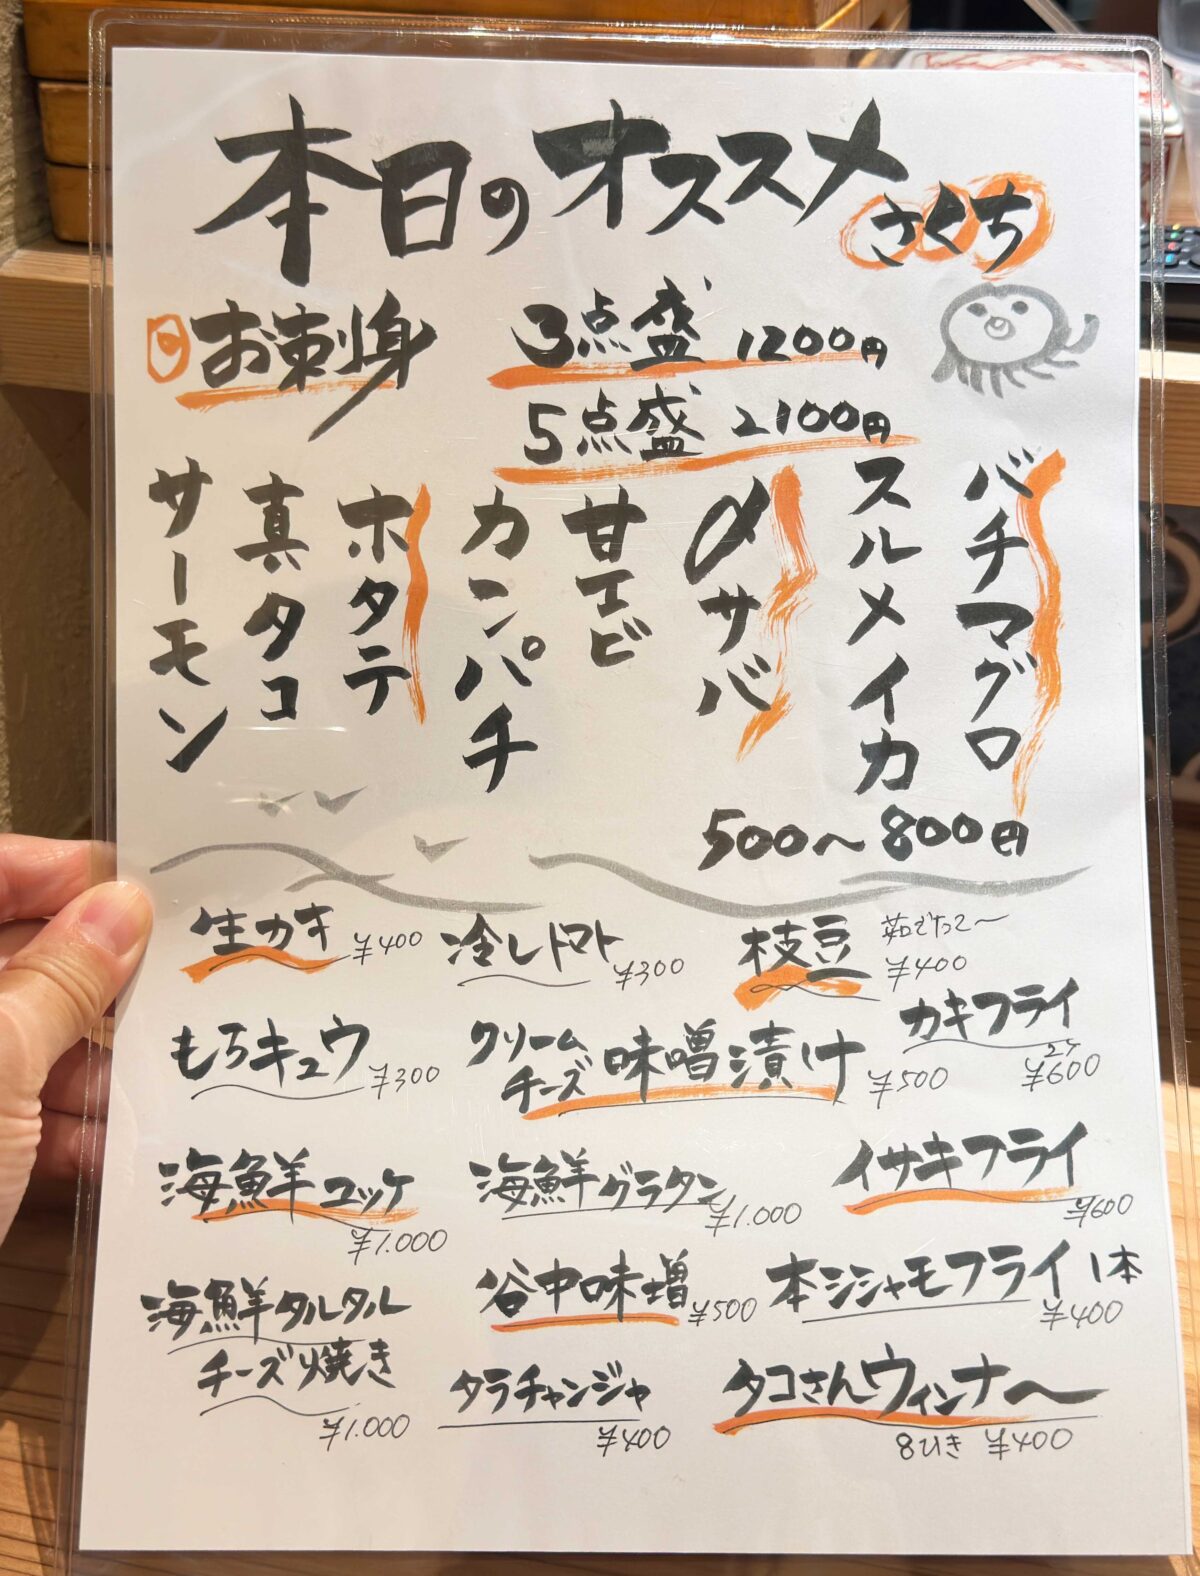 本日のオススメ
さくち
お刺身
3点盛 1200円
5点盛 2100円
バチマグロ
スルメイカ
〆サバ
甘エビ
カンパチ
ホタテ
真タコ
サーモン
500〜800円
生カキ ¥400
冷しトマト ¥300
枝豆 茹でたて〜 ¥400
もろキュウ ¥300
クリームチーズ味噌漬け ¥500
カキフライ 2ケ ¥600
海鮮ユッケ ¥1.000
海鮮グラタン ¥1.000
イサキフライ ¥600
海鮮タルタル
チーズ焼き ¥1.000
谷中味噌 ¥500
本シシャモフライ 1本 ¥400
タラチャンジャ ¥400
タコさんウィンナー
8ひき ¥400